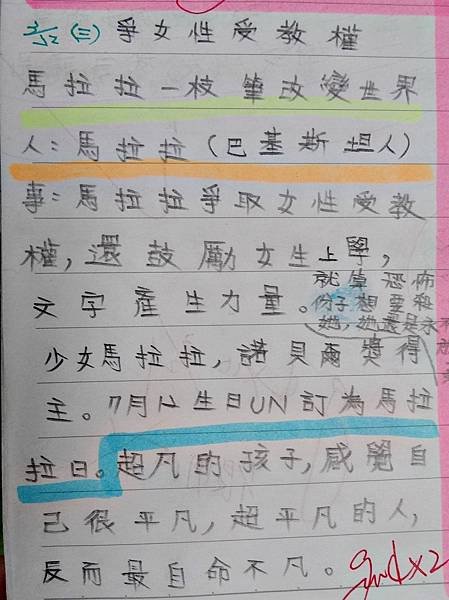 3/12 (三) 爭女性受教權
馬拉拉一枝筆改變世界
人：馬拉拉（巴基斯坦人）
事：馬拉拉爭取女性受教
權，還鼓勵女生上學，
文字產生力量。
就算恐佈
份子想要殺
她，她還是永不
少女馬拉拉，諾貝爾獎得
主。7月12生日UN訂為馬拉
拉日。超凡的孩子，感覺自
己很平凡，超平凡的人，
反而最自命不凡。